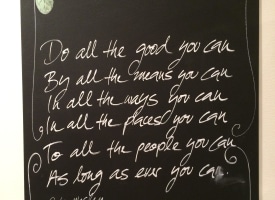 Do all the good you can
By all the means you can
In all the ways you can
In all the places you can
To all the people you can
As long as ever you can.